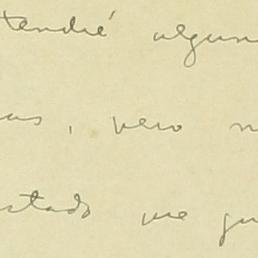 tendré algun
as, pero n
stado me gu